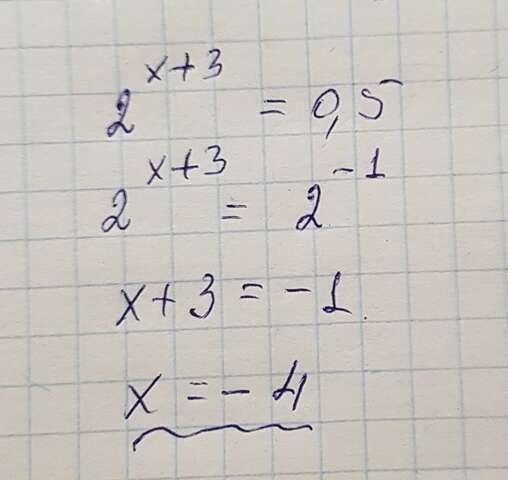 2^{x+3} = 0,5
2^{x+3} = 2^{-1}
x+3 = -1
x = -4